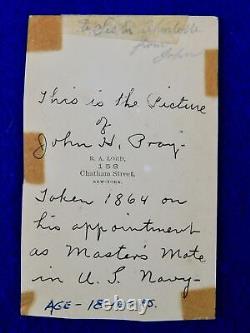 To Sister
from
John
This is the Picture
of
John H. Bray-
R. A. LORD,
158
Chatham Street,
NEW-YORK.
Taken 1864 on
his appointment
as Master's Mate
in U. S. Navy-
AGE - 18